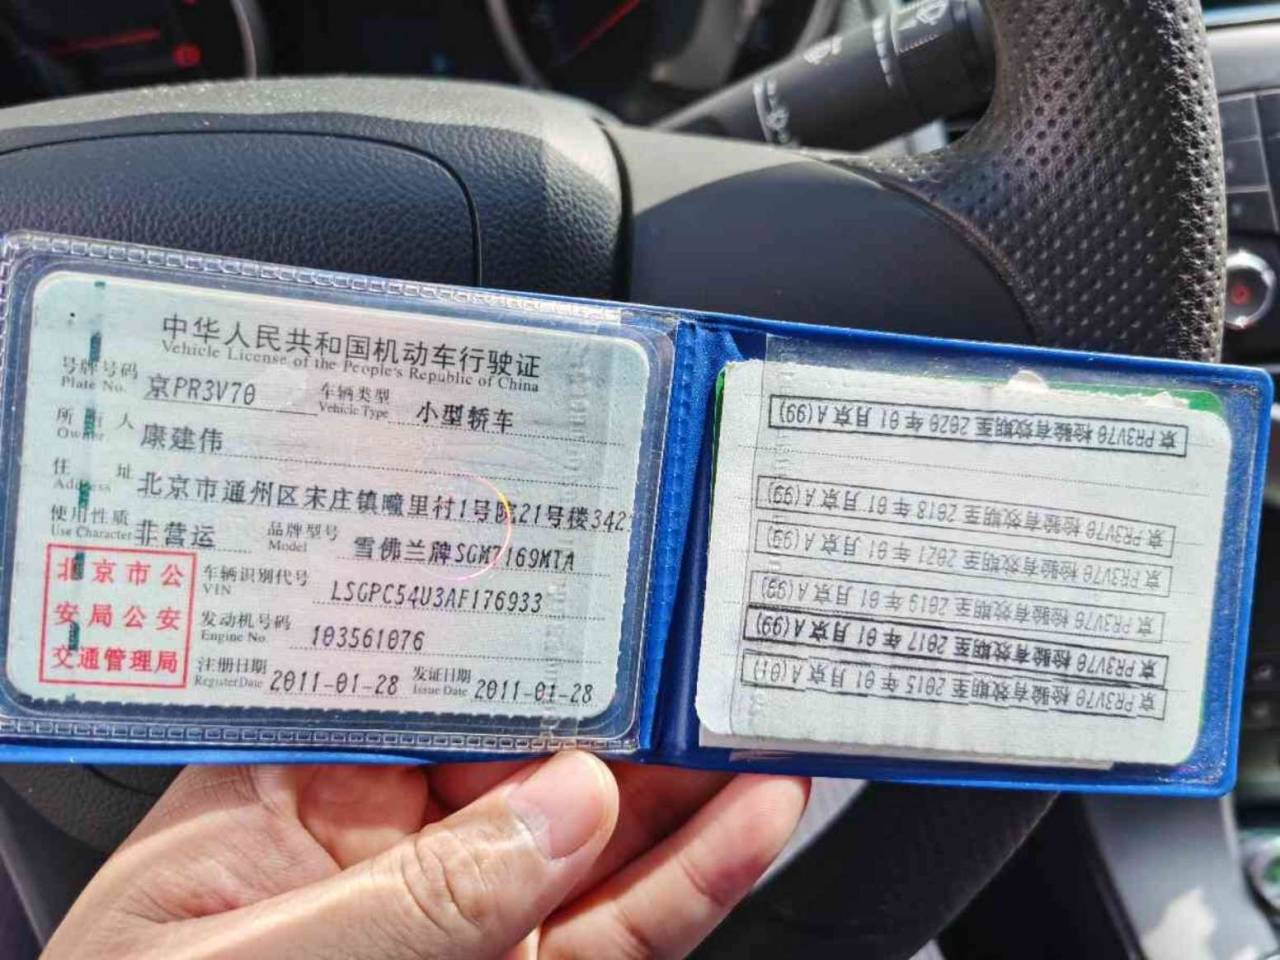 中华人民共和国机动车行驶证
Vehicle License of the People's Republic of China
号牌号码 京PR3V70 车辆类型 小型轿车
Plate No. Vehicle Type
所有人 康建伟
Owner
住址 北京市通州区宋庄镇疃里村1号院21号楼342
Address
使用性质 非营运 品牌型号 雪佛兰牌SGM7169MTA
Use Character Model
北京市公
安局公安
交通管理局
车辆识别代号 LSGPC54U3AF176933
VIN
发动机号码 103561076
Engine No.
注册日期 2011-01-28 发证日期 2011-01-28
Register Date Issue Date
京PR3V70 检验有效期至 2015 年 01 月京 A(01)
京PR3V70 检验有效期至 2017 年 01 月京 A(99)
京PR3V70 检验有效期至 2019 年 01 月京 A(99)
京PR3V70 检验有效期至 2021 年 01 月京 A(99)
京PR3V70 检验有效期至 2018 年 01 月京 A(99)
京PR3V70 检验有效期至 2020 年 01 月京 A(99)